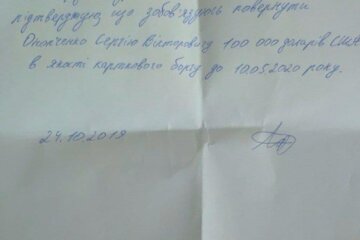 підтверджую що зобов'язуюсь повернути
Онопченко Сергію Вікторовичу 100 000 доларів США
в якості карткового боргу до 10.05.2020 року.
24.10.2019